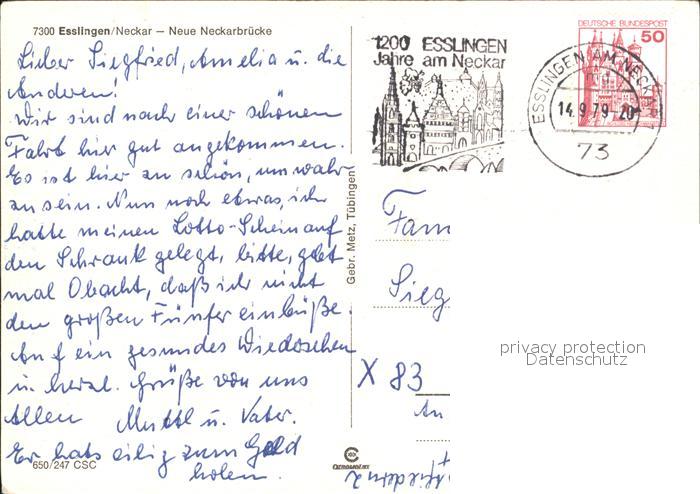 7300 Esslingen/Neckar — Neue Neckarbrücke
Lieber Siegfried, Amelia u. die
Anderen!
Wir sind nach einer schönen
Fahrt hier gut angekommen.
Es ist hier zu schön, um wahr
zu sein. Nun noch etwas, ich
hatte meinen Lotto-Schein auf
den Schrank gelegt, bitte, gebt
mal Obacht, daß ich nicht
den großen Fünfer einbüße.
Auf ein gesundes Wiedersehen
u. herzl. Grüße von uns
Allen Mutti u. Vater.
Er hats eilig zum Geld
holen.
650/247 CSC
Gebr. Metz, Tübingen
1200 ESSLINGEN
Jahre am Neckar
DEUTSCHE BUNDESPOST
50
ESSLINGEN AM NECKAR 1
14.9.79-20
73
Fam
Sieg
X 83
An
privacy protection
Datenschutz